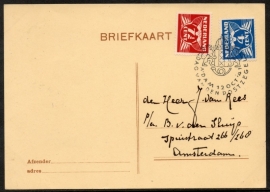 BRIEFKAART
NEDERLAND
7½
NEDERLAND
4
de Heer J. van Rees
p/a B. v. der Sluijs
Spuistraat 266/268
Amsterdam.
Afzender
adres